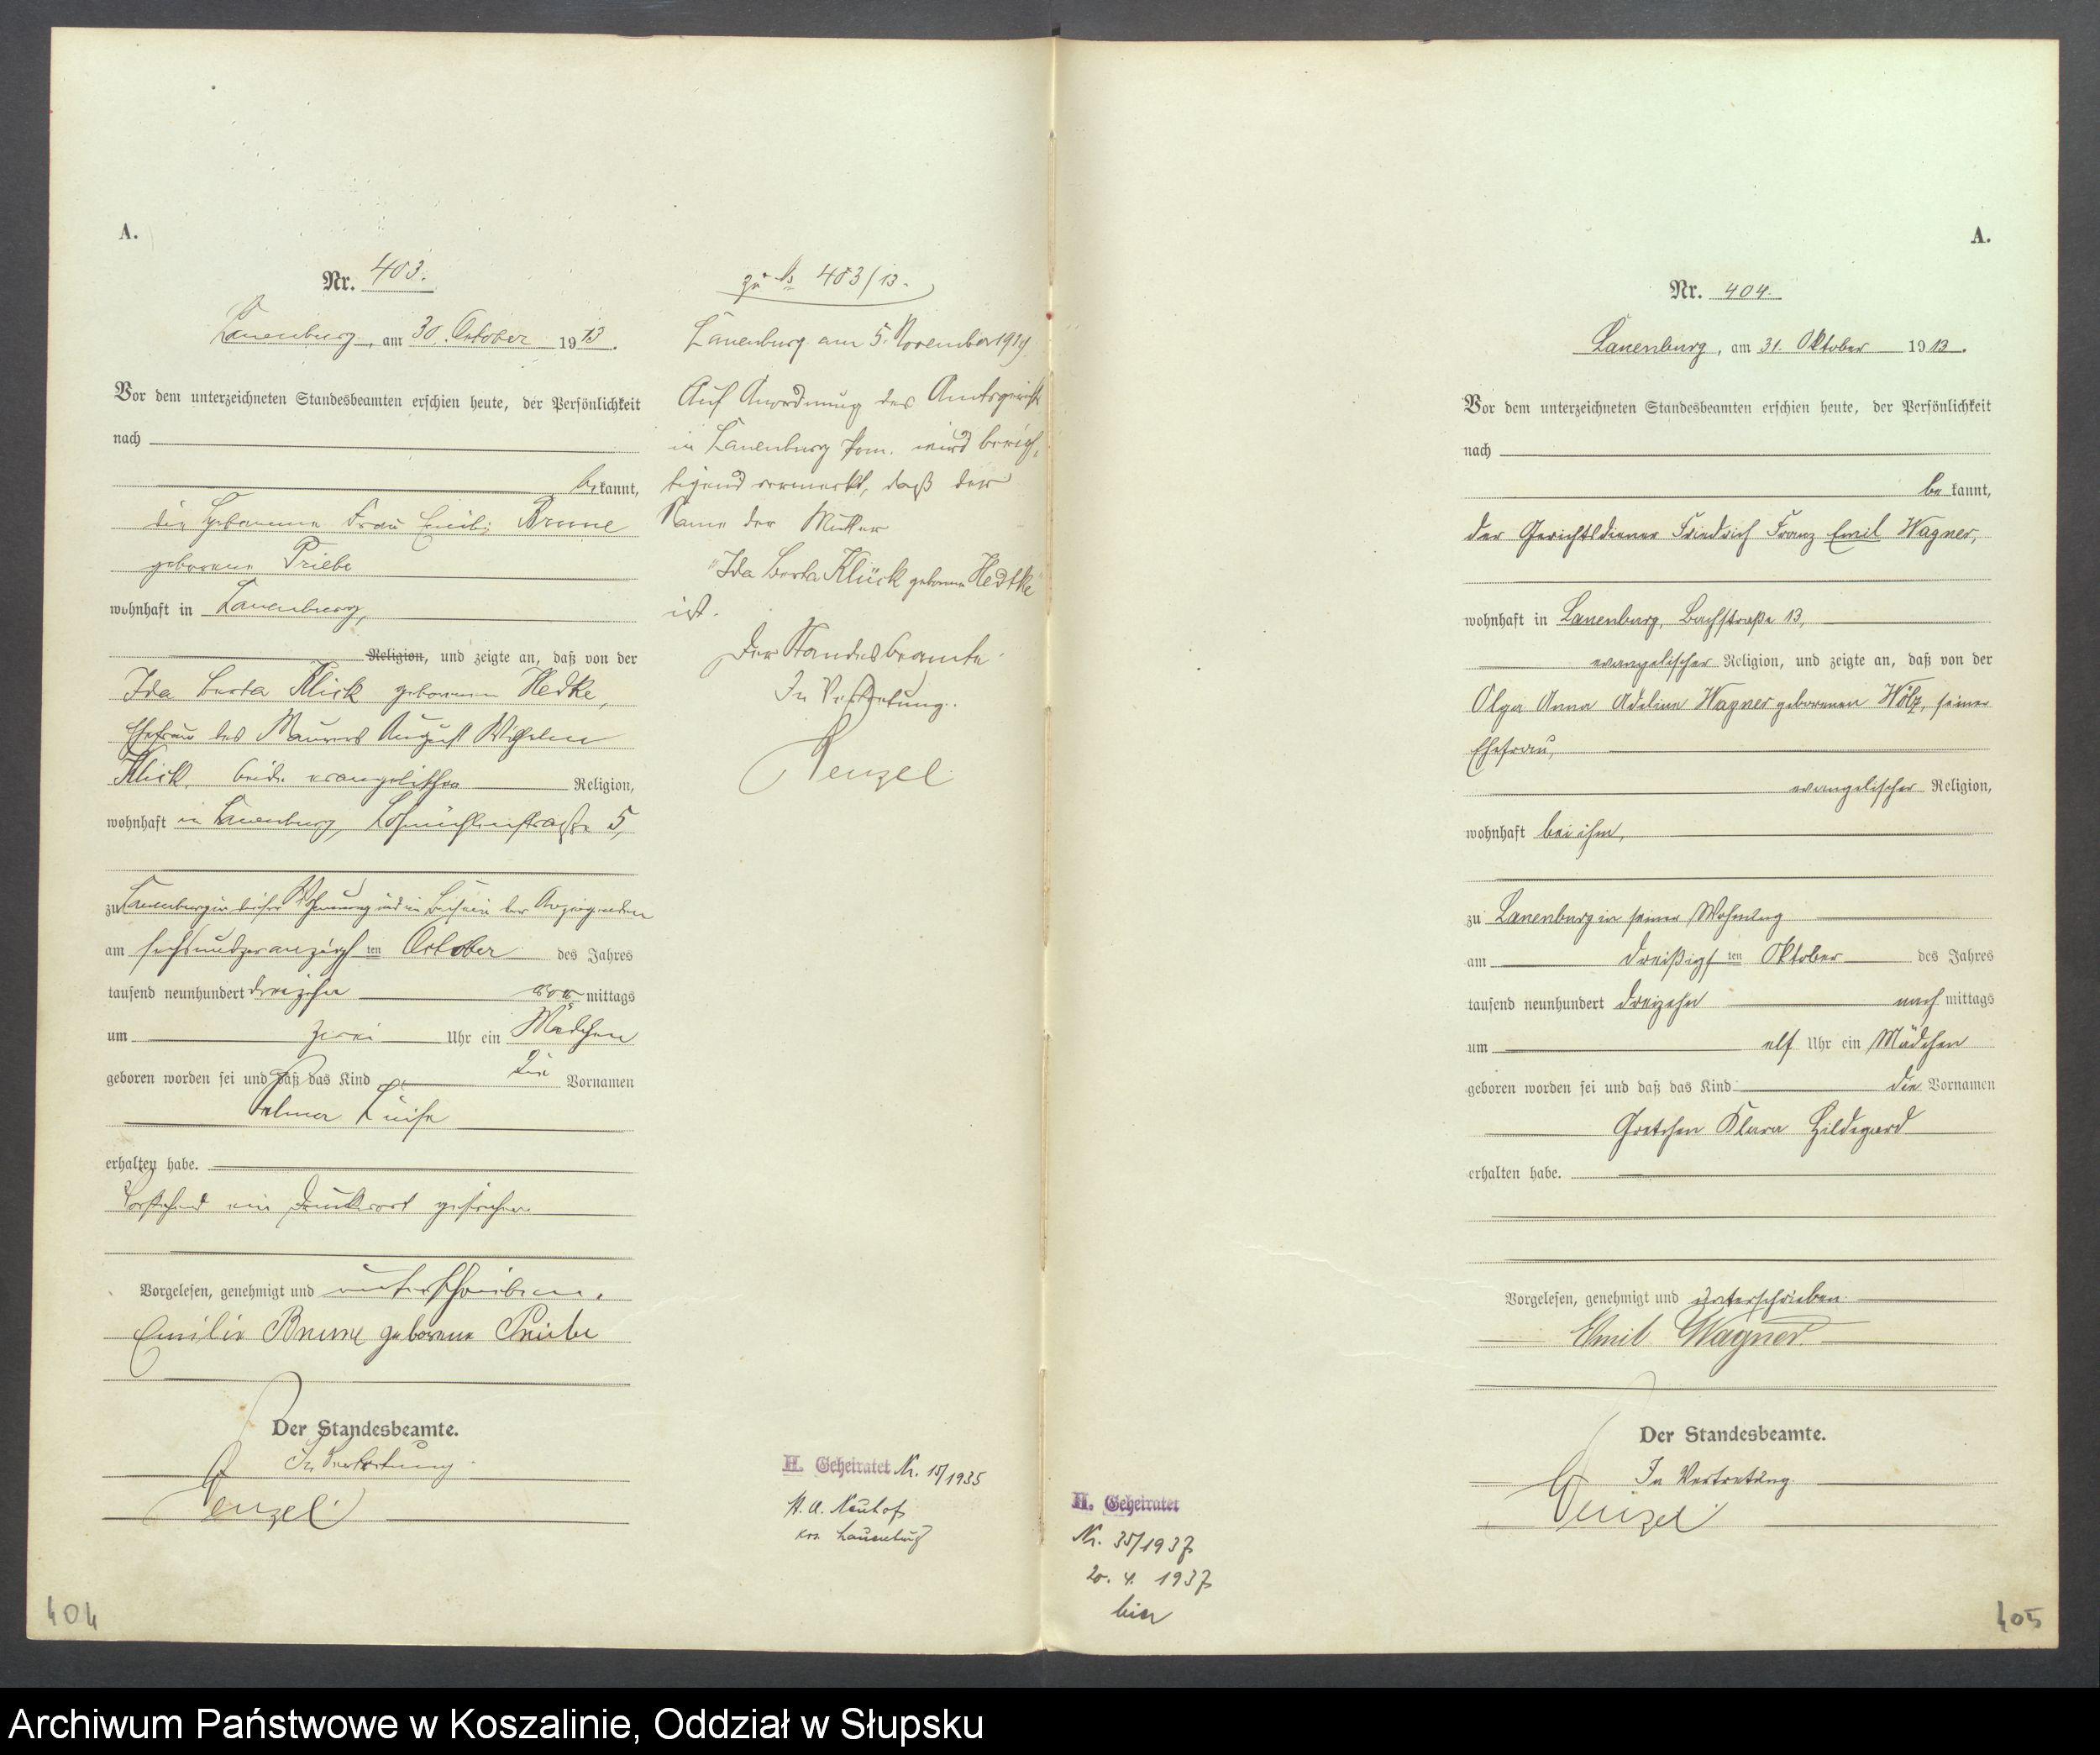 A.
Nr. 403.
Lauenburg, am 30. October 1913.
Vor dem unterzeichneten Standesbeamten erschien heute, der Persönlichkeit
nach
bekannt,
die Hebamme Frau Emilie Brune
geborene Priebe
wohnhaft in Lauenburg,
Religion, und zeigte an, daß von der
Ida Berta Klick geborenen Hedke,
Ehefrau des Maurers August Wilhelm
Klick, beide evangelischer Religion,
wohnhaft in Lauenburg, Lohmühlenstraße 5,
zu Lauenburg in dieser Wohnung und in Beisein der Anzeigenden
am sechsundzwanzigsten October des Jahres
tausend neunhundert dreizehn vormittags
um zwei Uhr ein Mädchen
geboren worden sei und daß das Kind die Vornamen
Luise
erhalten habe.
Vorstehend ein Druckwort gestrichen.
Vorgelesen, genehmigt und unterschrieben.
Emilie Brune geborene Priebe
Der Standesbeamte.
In Vertretung.
Penzel
404
zu № 403/13.
Lauenburg am 5. November 1919.
Auf Anordnung des Amtsgerichts
in Lauenburg Pom. wird berich-
tigend vermerkt, daß der
Name der Mutter
"Ida Berta Klück geborene Hedtke"
ist.
Der Standesbeamte.
In Vertretung.
Penzel
H. Geheiratet Nr. 15/1935
St. A. Neuhof
Krs. Lauenburg
A.
Nr. 404.
Lauenburg, am 31. Oktober 1913.
Vor dem unterzeichneten Standesbeamten erschien heute, der Persönlichkeit
nach
bekannt,
der Gerichtsdiener Friedrich Franz Emil Wagner,
wohnhaft in Lauenburg, Bachstraße 13,
evangelischer Religion, und zeigte an, daß von der
Olga Anna Adeline Wagner geborenen Wölz, seiner
Ehefrau,
evangelischer Religion,
wohnhaft bei ihm,
zu Lauenburg in seiner Wohnung
am dreißigsten Oktober des Jahres
tausend neunhundert dreizehn nachmittags
um elf Uhr ein Mädchen
geboren worden sei und daß das Kind die Vornamen
Gretchen Klara Hildegard
erhalten habe.
Vorgelesen, genehmigt und unterschrieben.
Emil Wagner.
Der Standesbeamte.
In Vertretung.
Penzel
H. Geheiratet
Nr. 35/1937
20. 4. 1937
405
Archiwum Państwowe w Koszalinie, Oddział w Słupsku